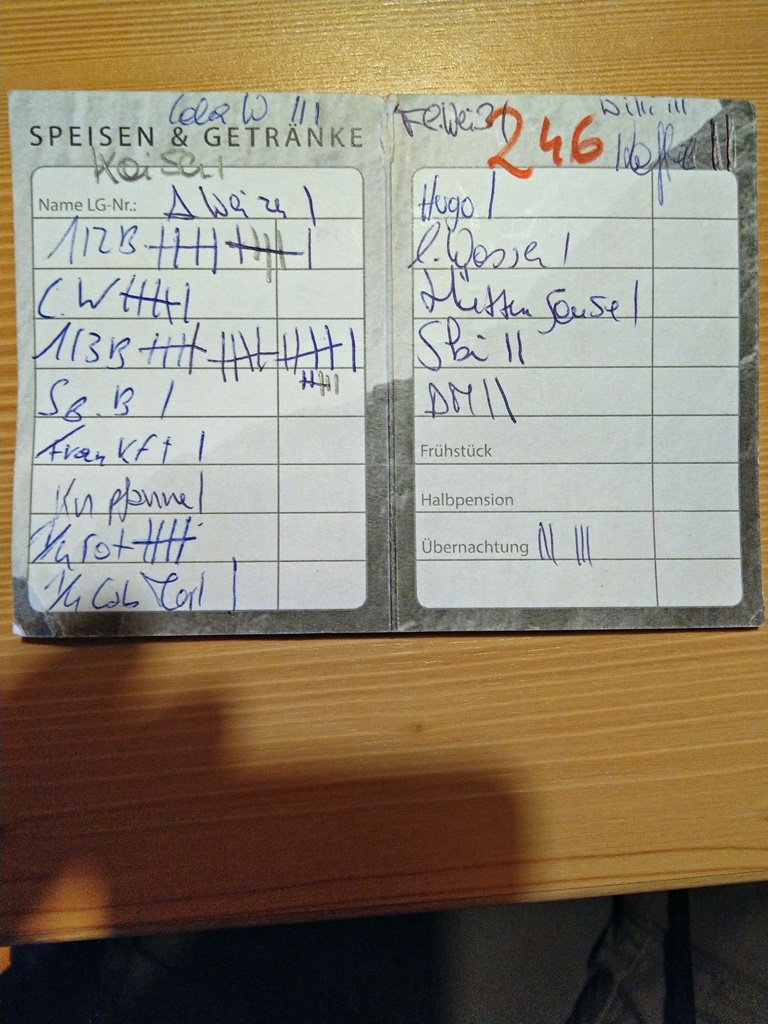 Cola W III
SPEISEN & GETRÄNKE
Kaisch I
Name LG-Nr.: A Weizen I
1/2 B IIII IIII I
C. W IIII I
1/3 B IIII IIII IIII I
IIII
Sg. B I
Frankft I
Kn pfanne I
1/4 rot IIII
1/4 Cab I
246
Willi III
Kaffee II
Hugo I
l. Wasser I
Hütten Jause I
Ski II
DM II
Frühstück
Halbpension
Übernachtung II III